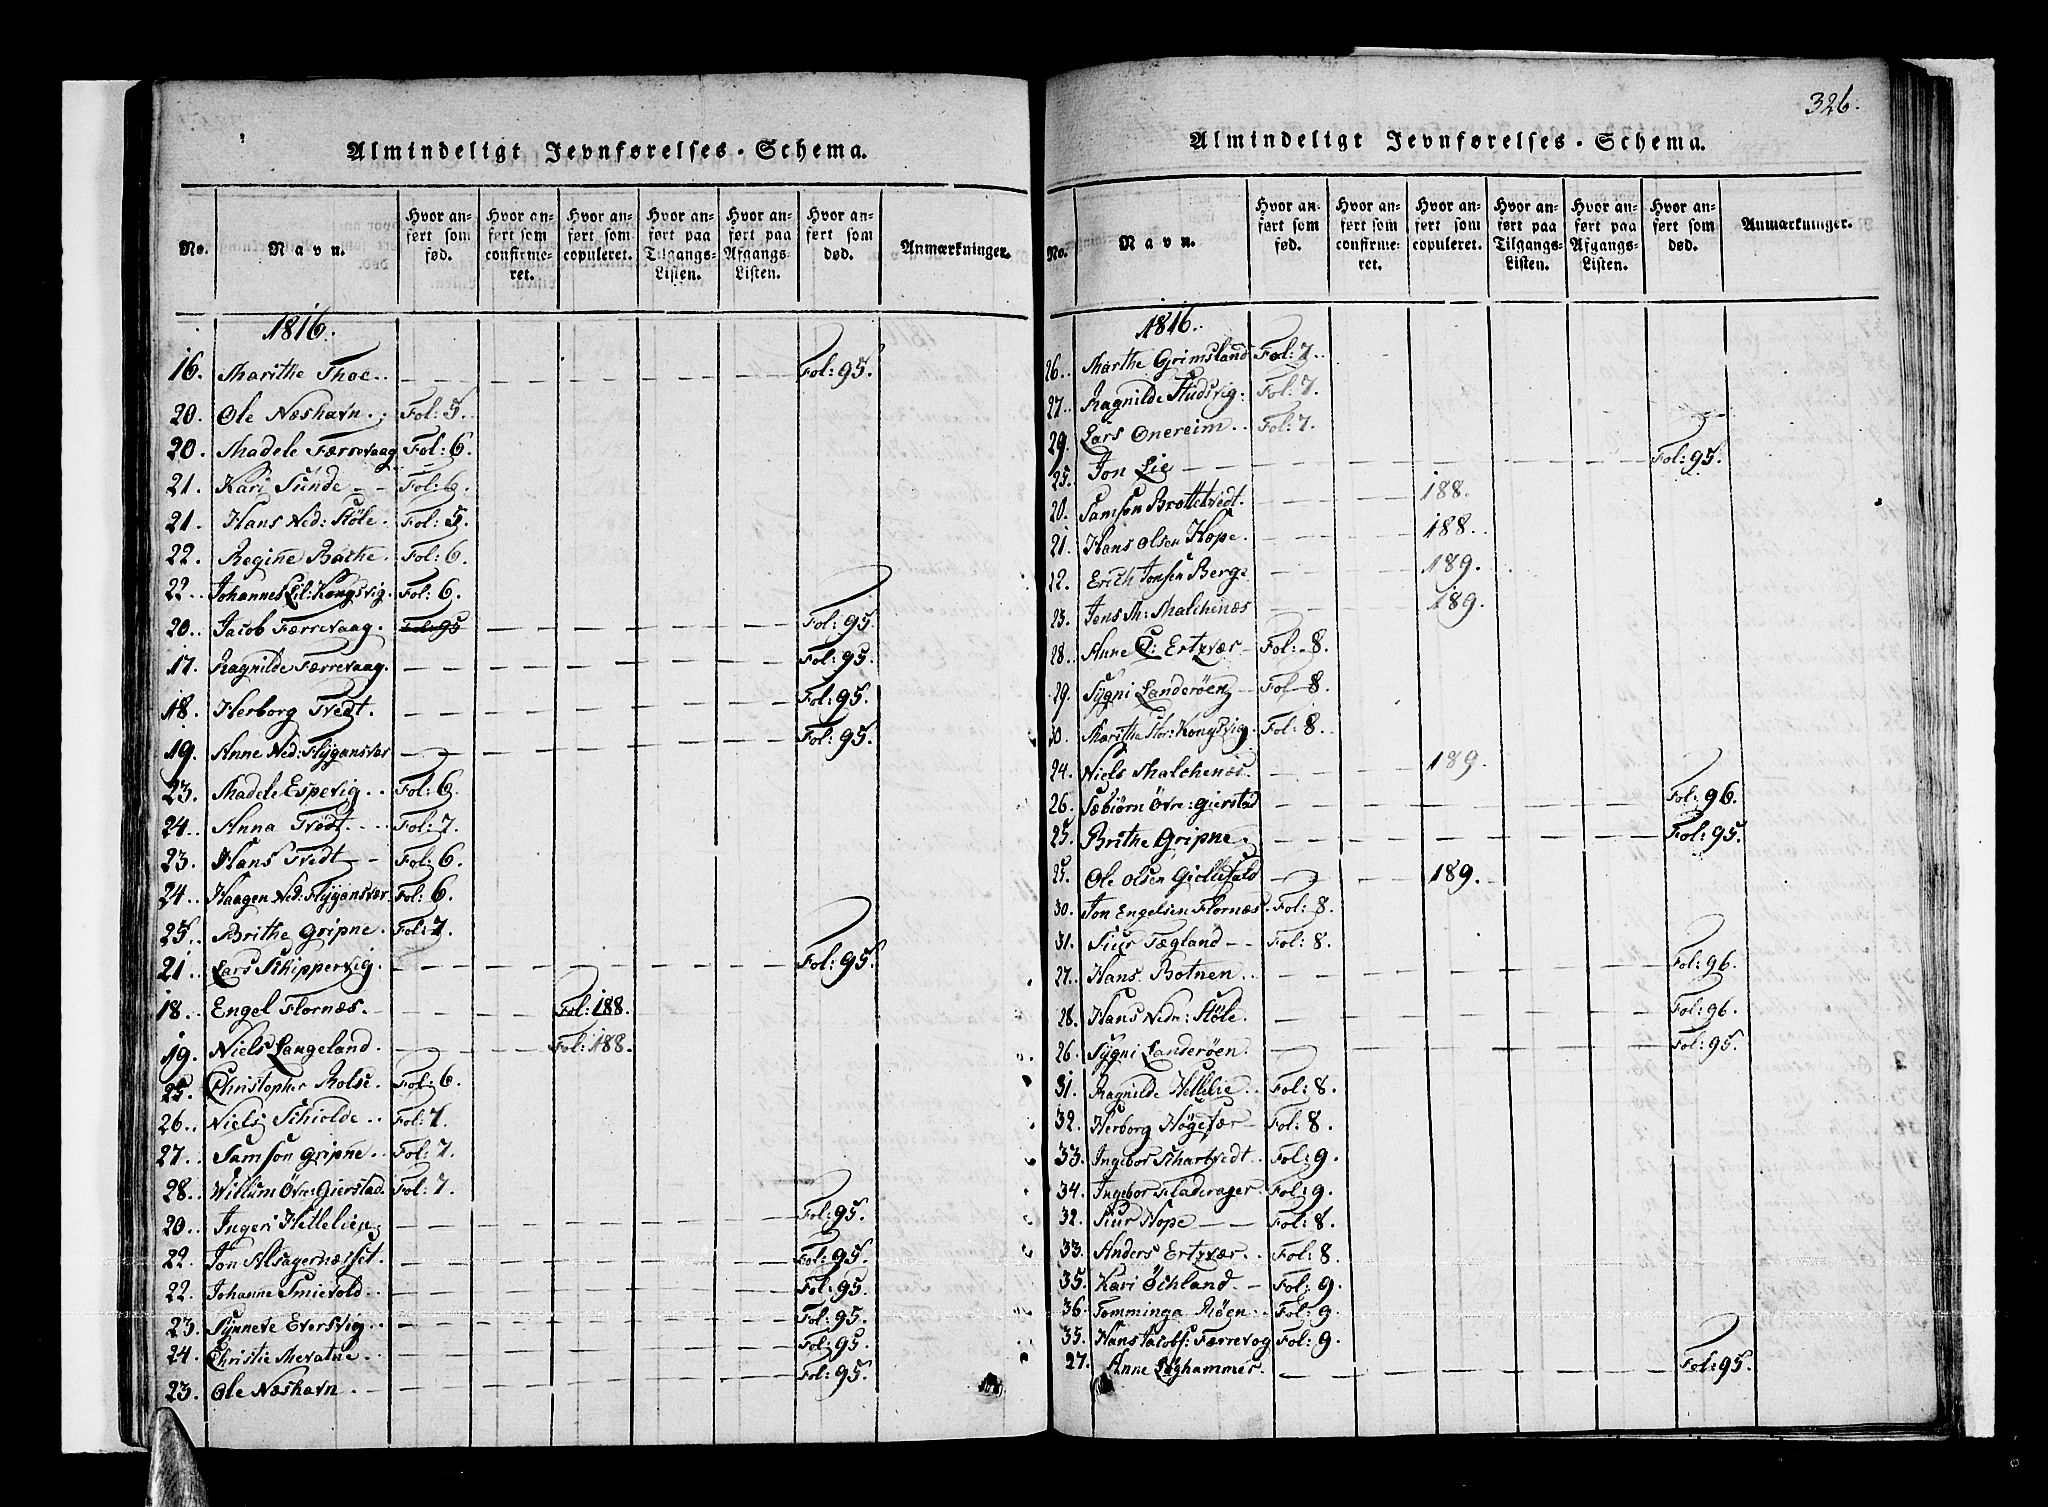 Almindeligt Jevnførelses-Schema.
No. Navn. Hvor anført som fød. Hvor anført som confirmeret. Hvor anført som copuleret. Hvor anført paa Tilgangs-Listen. Hvor anført paa Afgangs-Listen. Hvor anført som død. Anmærkninger.
1816.
16. Marithe Thoe.. Fol: 95.
20. Ole Næshavn.. Fol: 5.
20. Madele Færrevaag Fol: 6.
21. Kari Sunde Fol: 6.
21. Hans Ned: Støle. Fol: 5.
22. Regine Bache. Fol: 6.
22. Johannes Lil: Kongsvig. Fol: 6.
20.. Jacob Færrevaag. Fol: 95 Fol: 95.
17. Ragnilde Færrevaag. Fol: 95.
18. Herborg Tvedt. Fol: 95.
19. Anne Ned: Flygansvær Fol: 95.
23. Madele Espevig.. Fol: 6.
24.. Anna Tvedt Fol: 7.
23. Hans Tvedt Fol: 6.
24.. Haagen Ned: Flygansvær. Fol: 6.
25.. Brithe Gripne. Fol: 7.
21. Lars Skippervig. Fol: 95.
18. Engel Flornæs. Fol: 188.
19. Niels Langeland. Fol: 188.
25. Christopher Rolse. Fol: 6.
26.. Niels Schiolde.. Fol: 7.
27.. Samson Gripne.. Fol: 7.
28.. Willum Øvre: Gierstad. Fol: 7.
20.. Ingeri Hettelien Fol: 95.
22. Jon Alsagernæsset. Fol: 95.
22. Johanne Smievold.. Fol: 95.
23. Synneve Eversvig.. Fol: 95.
24. Christie Mevatne. Fol: 95.
23. Ole Næshavn. Fol: 95.
326.
Almindeligt Jevnførelses-Schema.
No. Navn. Hvor anført som fød. Hvor anført som confirmeret. Hvor anført som copuleret. Hvor anført paa Tilgangs-Listen. Hvor anført paa Afgangs-Listen. Hvor anført som død. Anmærkninger.
1816.
26.. Marthe Grimsland Fol: 7.
27.. Ragnilde Studsvig. Fol: 7.
29. Lars Onereim.. Fol: 7.
25. Jon Lie Fol: 95.
20. Samson Brottetvedt. 188.
21. Hans Olsen Hope. 188.
22. Erich Jonsen Berge 189.
23. Jens M: Malchenæs 189.
28.. Anne C: Ertzvær Fol: 8.
29. Sygni Landerøen Fol 8.
30. Marithe Stor: Kongsvig. Fol: 8.
24. Niels Malchenæs. 189.
26. Sæbiørn Øvre: Gierstad Fol: 96.
25. Brithe Gripne. Fol: 95.
25. Ole Olsen Giellefald 189.
30. Jon Engelsen Flornæs. Fol: 8.
31. Siur Tægland Fol: 8.
27. Hans Botnen.. Fol: 96.
28. Hans Nedr: Støle. Fol: 96.
26. Sygni Landerøen. Fol: 95.
31. Ragnilde Hettelie.. Fol: 8.
32. Herborg Høgevær Fol: 8.
33. Ingebor Schartvedt.. Fol: 9.
34. Ingebor Sladerager Fol: 9.
32. Siur Hope Fol: 8.
33. Anders Ertzvær.. Fol: 8
35. Kari Øchland Fol: 9.
36. Tomminga Røen.. Fol: 9.
35. Hans Jacobs: Færrevog Fol: 9.
27. Anne Løghammer. Fol: 95.